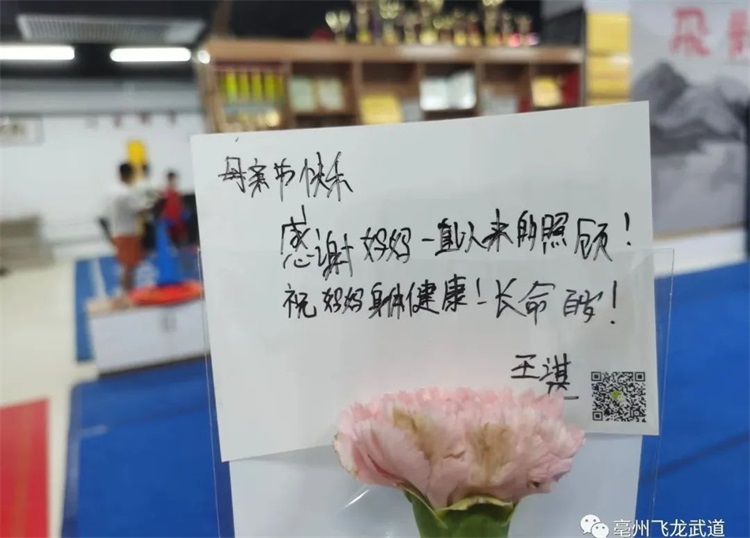 飞
母亲节快乐
感谢妈妈一直以来的照顾！
祝妈妈身体健康！长命百岁！
王淇
亳州飞龙武道